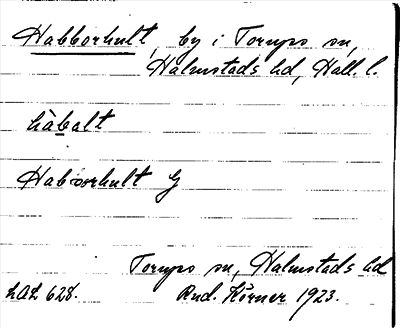 Habborhult, by i Torups sn,
Halmstads hd, Hall. l.
hàbalt
Habborhult G
Torups sn, Halmstads hd
LAL 628. Rud. Körner 1923.